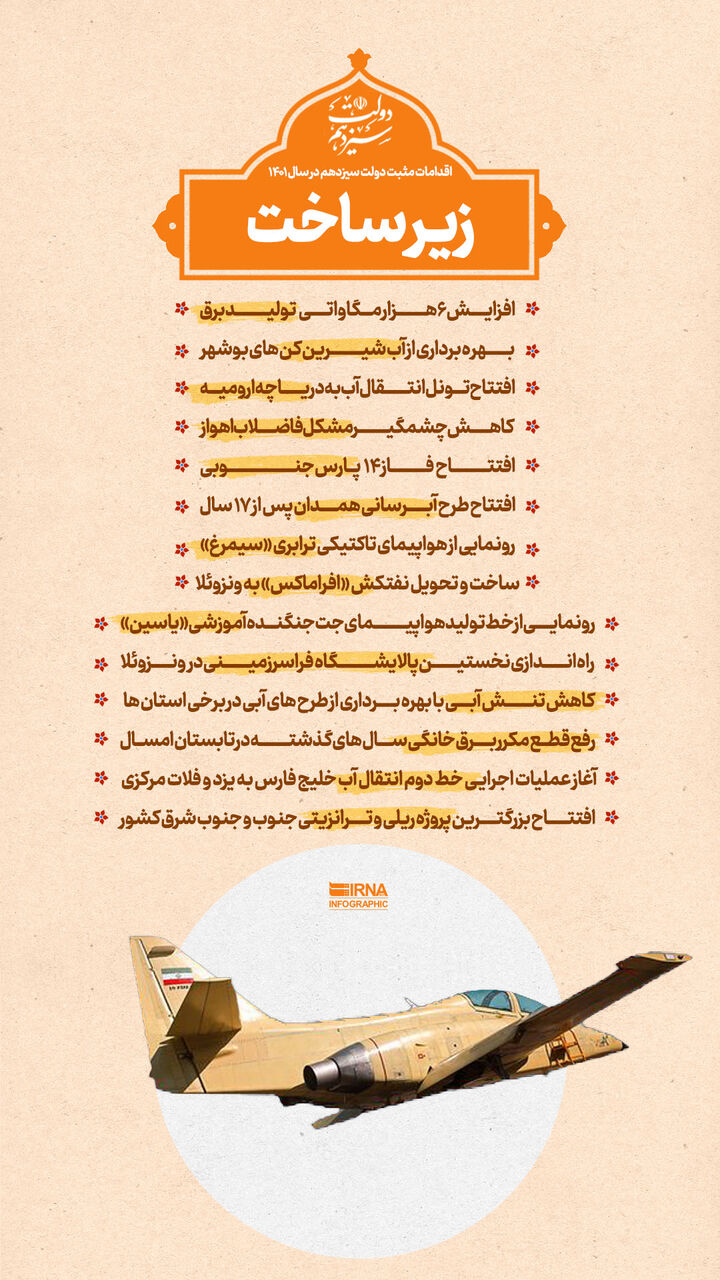 دولت
سیزدهم
اقدامات مثبت دولت سیزدهم در سال ۱۴۰۱
زیرساخت
افزایش ۶ هزار مگاواتی تولید برق
بهره برداری از آب شیرین کن های بوشهر
افتتاح تونل انتقال آب به دریاچه ارومیه
کاهش چشمگیر مشکل فاضلاب اهواز
افتتاح فاز ۱۴ پارس جنوبی
افتتاح طرح آبرسانی همدان پس از ۱۷ سال
رونمایی از هواپیمای تاکتیکی ترابری «سیمرغ»
ساخت و تحویل نفتکش «افراماکس» به ونزوئلا
رونمایی از خط تولید هواپیمای جت جنگنده آموزشی «یاسین»
راه اندازی نخستین پالایشگاه فراسرزمینی در ونزوئلا
کاهش تنش آبی با بهره برداری از طرح های آبی در برخی استان ها
رفع قطع مکرر برق خانگی سال های گذشته در تابستان امسال
آغاز عملیات اجرایی خط دوم انتقال آب خلیج فارس به یزد و فلات مرکزی
افتتاح بزرگترین پروژه ریلی و ترانزیتی جنوب و جنوب شرق کشور
IRNA
INFOGRAPHIC